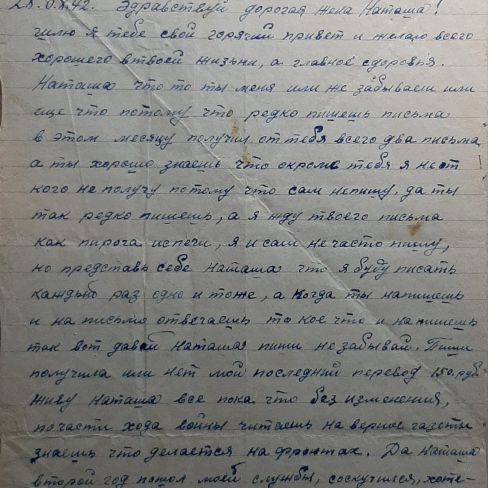 28.08.42. Здравствуй дорогая жена Наташа!
шлю я тебе свой горячий привет и желаю всего
хорошего в твоей жизьни, а главное здоровья.
Наташа что то ты меня или же забываеш или
еще что потому что редко пишешь письма
в этом месяцу получил от тебя всего два письма
а ты хорошо знаешь что окроме тебя я не от
кого не получу потому что сам непишу, да ты
так редко пишешь, а я жду твоего письма
как пирога из печи, я и сам не часто пишу,
но представь себе Наташа что я буду писать
каждый раз одно и тоже, а когда ты напишешь
и на письмо отвечаешь то кое что и напишешь
так вот давай Наташа пиши не забывай. Пиши
получила или нет мой последний перевод 150 руб.
Живу Наташа все пока что без изменения,
почасти хода войны читаешь наверно газеты
знаешь что делается на фронтах. Да Наташа
второй год пошол моей службы, соскучился, хоте-